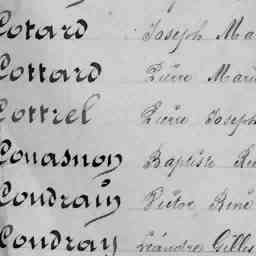 Cotard Joseph Ma
Cottard Pierre Marie
Cottrel Pierre Joseph
Couasnon Baptiste
Coudrain Victor René
Coudray Léandre Gilles